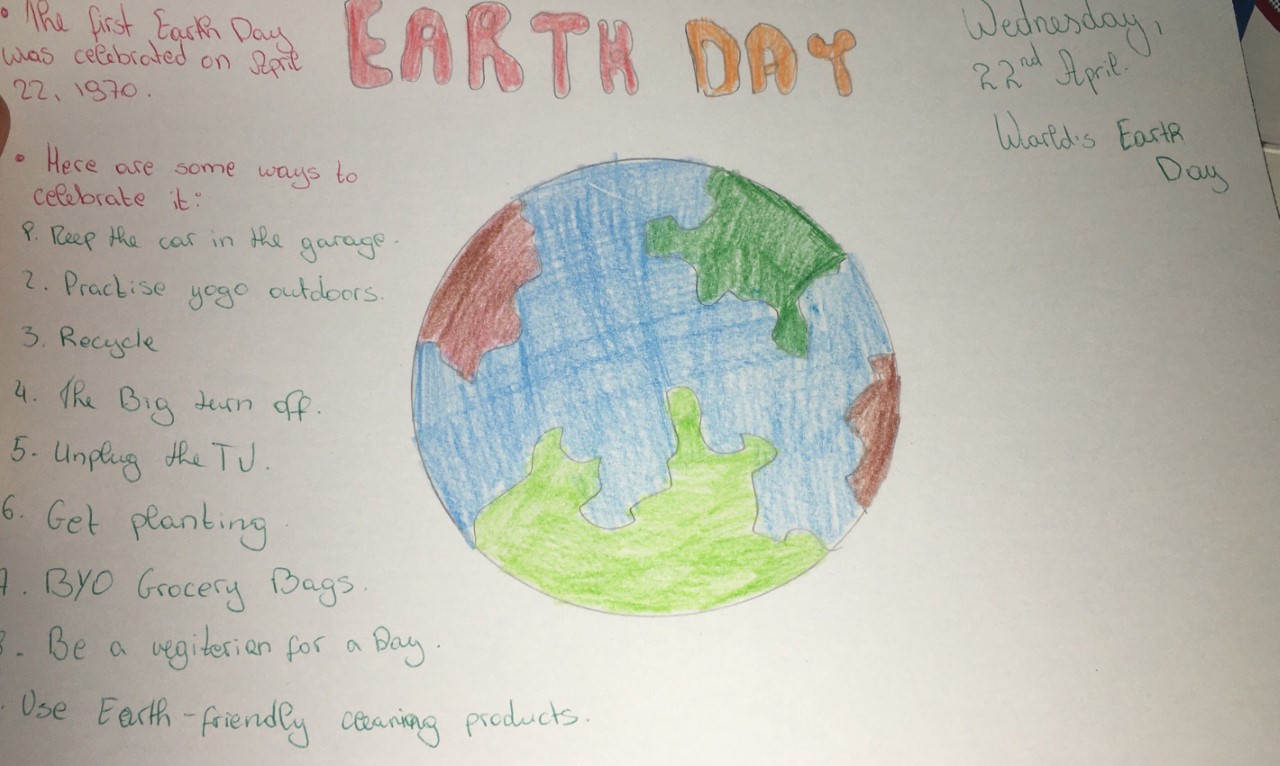 EARTH DAY
Wednesday,
22nd April.
World's Earth
Day
• The first Earth Day
was celebrated on April
22, 1970.
• Here are some ways to
celebrate it:
1. Keep the car in the garage.
2. Practise yogo outdoors.
3. Recycle
4. The Big turn off.
5. Unplug the TV.
6. Get planting.
7. BYO Grocery Bags.
8. Be a vegiterian for a Day.
. Use Earth-friendly cleaning products.